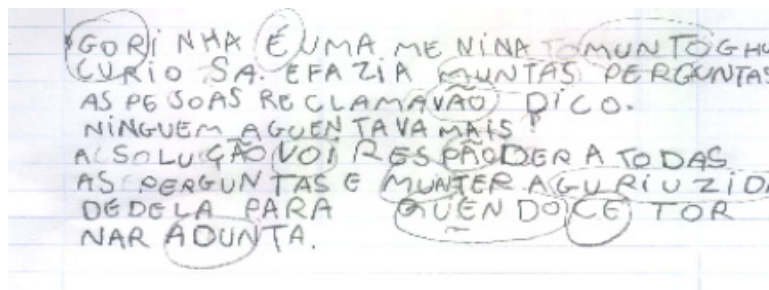 GORINHA É UMA MENINA MUNTO GHU
CURIOSA. E FAZIA MUNTAS PERGUNTAS
AS PESOAS RECLAMAVÃO DICO.
NINGUEM AGUENTAVA MAIS!
A SOLUÇÃO VOI RESPÃODER A TODAS
AS PERGUNTAS E MUNTER AGURIUZIDA
DEDELA PARA QUẼNDO CE TOR
NAR ADUNTA.